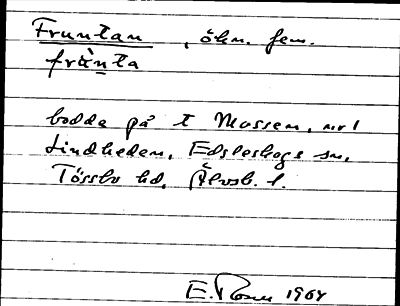 Fruntan, ökn. fem.
frànta
bodde på t Mossen, nr 1
Lindheden, Edsleskogs sn,
Tössbo hd, Älvsb. l.
E. 1964